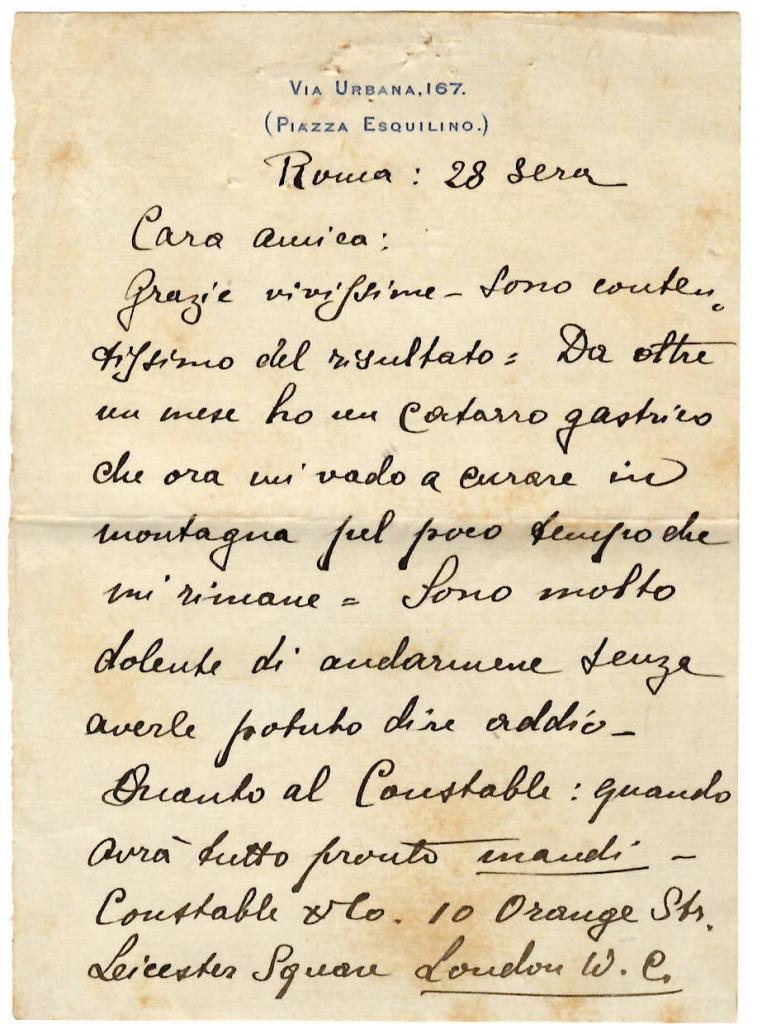 VIA URBANA, 167.
(PIAZZA ESQUILINO.)
Roma: 28 sera
Cara amica:
Grazie vivissime - Sono conten-
tissimo del risultato = Da oltre
un mese ho un catarro gastrico
che ora mi vado a curare in
montagna pel poco tempo che
mi rimane = Sono molto
dolente di andarmene senza
averle potuto dire addio -
Quanto al Constable: quando
avrà tutto pronto mandi -
Constable & Co. 10 Orange Str.
Leicester Square London W. C.